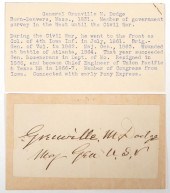 General Grenville M. Dodge
Born-Danvers, Mass. 1831. Member of government
survey in the West until the Civil War.
During the Civil War, he went to the front as
Col. of 4th Iowa Inf. in July, 1861. Brig.-
Gen. of Vol. in 1862. Maj. Gen. 1863. Wounded
at battle of Atlanta, 1864. That year succeeded
Gen. Rosecrans in Dept. of Mo. Resigned in
1866, and became chief Engineer of Union Pacific
&
in 1866-7. Member of Congress from
Iowa. Connected with early Pony Express.
Grenville M. Dodge
Maj. Gen U.S.V